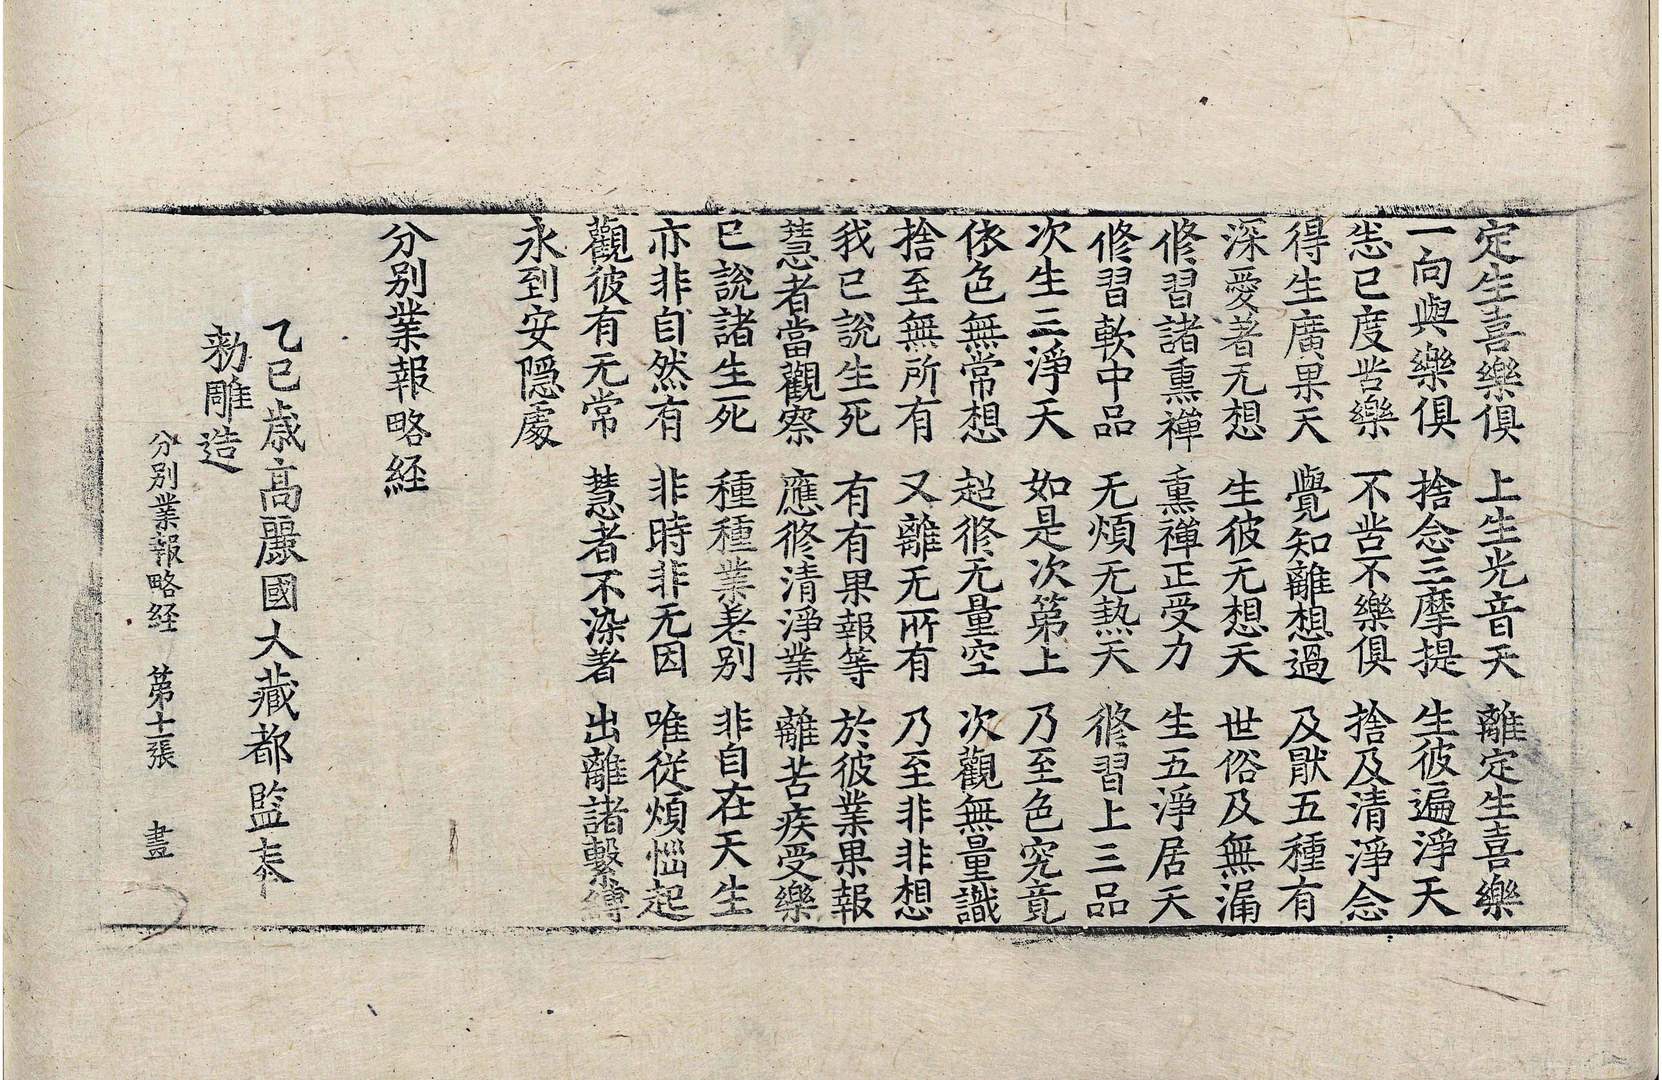 定生喜樂俱 上生光音天 離定生喜樂
一向與樂俱 捨念三摩提 生彼遍淨天
悉已度苦樂 不苦不樂俱 捨及清淨念
得生廣果天 覺知離想過 及猒五種有
深愛著无想 生彼无想天 世俗及無漏
修習諸熏禪 熏禪正受力 生五淨居天
修習軟中品 无煩无熱天 修習上三品
次生三淨天 如是次第上 乃至色究竟
依色無常想 超修无量空 次觀無量識
捨至無所有 又離无所有 乃至非非想
我已說生死 有有果報等 於彼業果報
慧者當觀察 應修清淨業 離苦疾受樂
已說諸生死 種種業差別 非自在天生
亦非自然有 非時非无因 唯從煩惱起
觀彼有无常 慧者不染著 出離諸繫縛
永到安隱處
分別業報略経
乙巳歲高麗國大藏都監奉
勅雕造
分別業報略経 第十一張 晝